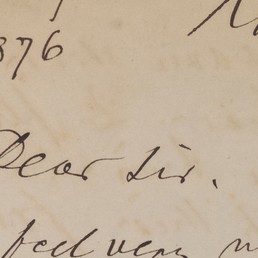 876
Dear Sir.
feel very